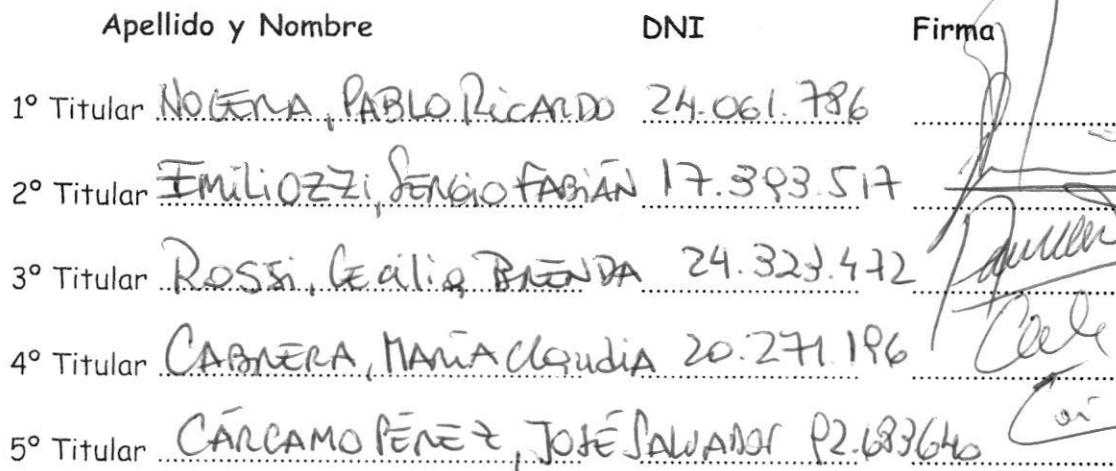 Apellido y Nombre DNI Firma
1º Titular NOCERA, PABLO RICARDO 24.061.786
2º Titular EMILIOZZI, SERGIO FABIÁN 17.393.517
3º Titular ROSSI, Cecilia BRENDA 24.323.472
4º Titular CABRERA, MARIA Claudia 20.271.196
5º Titular CÁRCAMO PÉREZ, JOSÉ SALVADOR 92.683640